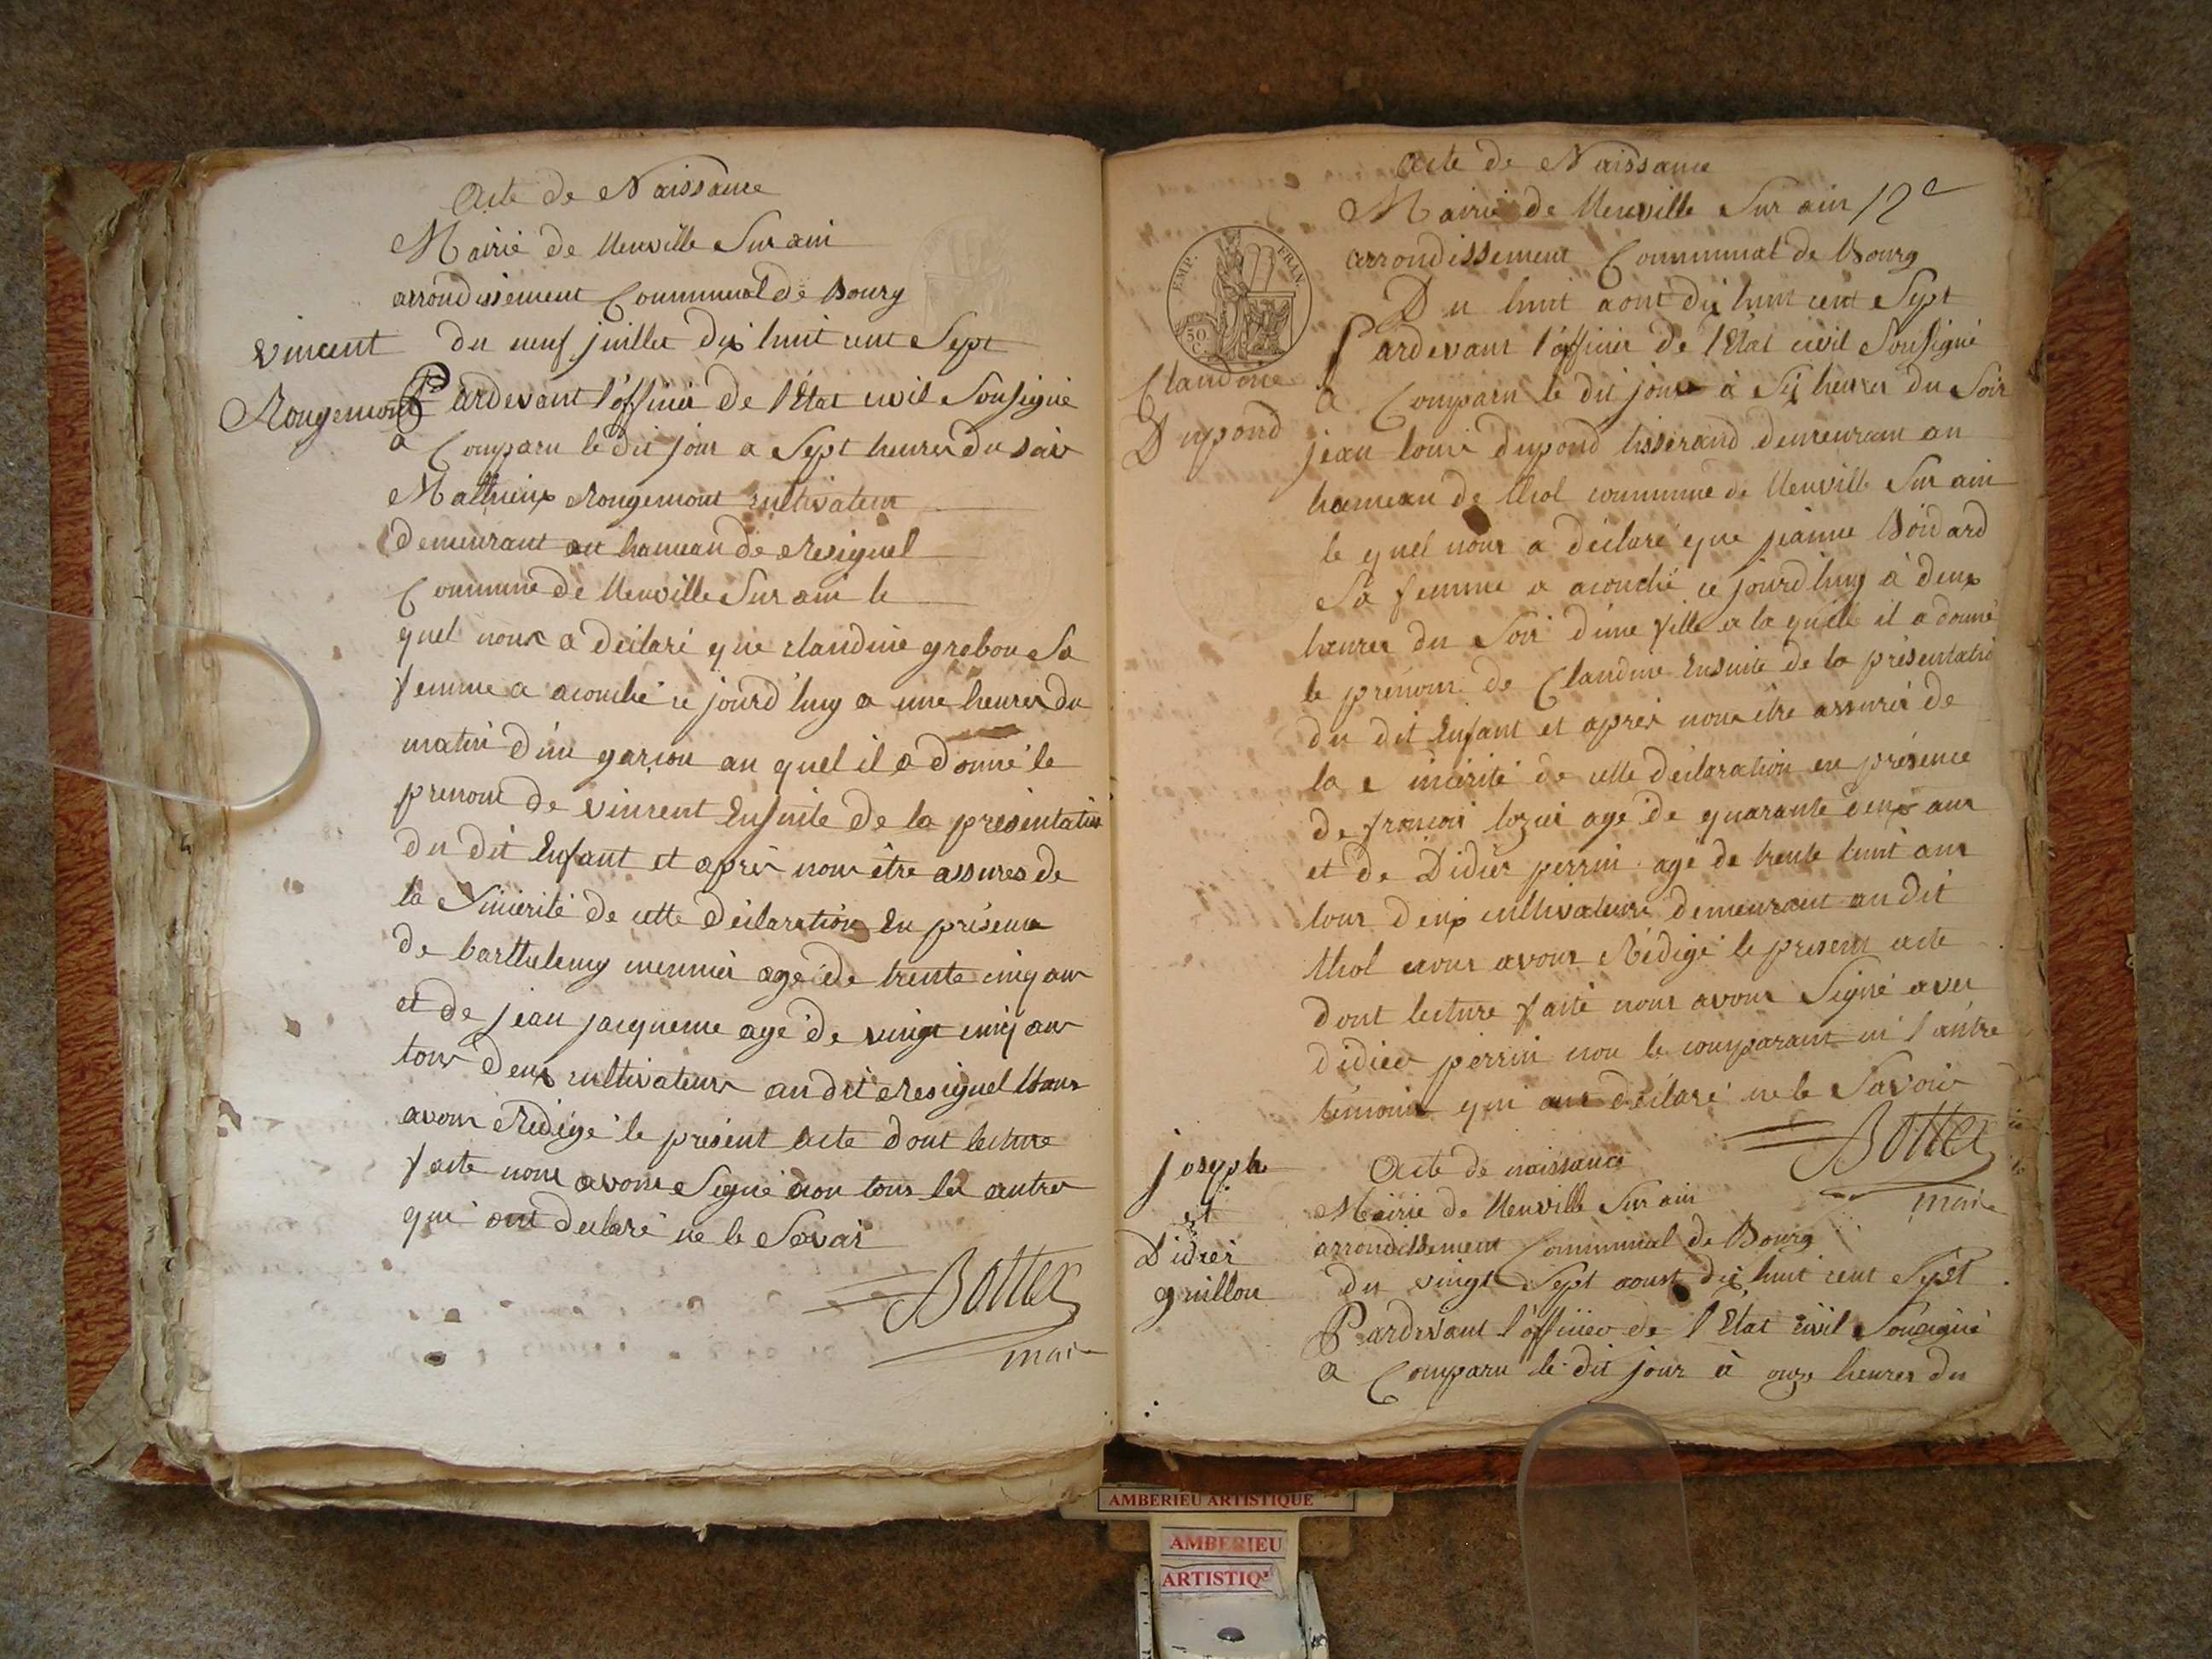 Acte de Naissance
Mairie de Neuville Sur ain
arrondissement Communal de Bourg
vincent
Rougemont
du neuf juillet dix huit cent Sept
Pardevant l'officier de l'Etat civil Sousigné
a Comparu le dit jour a Sept heures du soir
Mathieux Rougemont cultivateur
demeurant au hameau de Resignel
Commune de Neuville Sur ain le
quel nous a déclaré que claudine grobon Sa
femme a acouché ce jourd'huy a une heures du
matin d'un garçon au quel il a donné le
prenom de vincent Ensuite de la présentation
du dit Enfant et après nous être assurés de
la Sincérité de cette déclaration En présence
de barthelemy meunier agé de trente cinq ans
et de jean jacqueme agé de vingt cinq ans
tous deux cultivateurs au dit Resignel Nous
avons Rédigé le présent acte dont lecture
faite nous avons Signé non tous les autres
qui ont declaré ne le Savoir
Bottex
maire
Acte de Naissance
Mairie de Neuville Sur ain 12e
arrondissement Communal de Bourg
EMP. FRAN.
50 C.
Claudine
Dupond
Du huit aout dix huit cent Sept
Pardevant l'officier de l'Etat civil Sousigné
a Comparu le dit jour à Six heures du Soir
jean louis dupond tisserand demeurant au
hameau de thol commune de Neuville Sur ain
le quel nous a déclaré que jeanne Boidard
Sa femme a acouché ce jourd'huy à deux
heures du Soir d'une fille a la quelle il a donné
le prénom de Claudine Ensuite de la présentatio
du dit Enfant et après nous être assurés de
la sincérité de cette déclaration en présence
de francois agé de quarante deux ans
et de Didier perrin agé de trente huit ans
tous deux cultivateurs demeurant au dit
thol nous avons Rédigé le présent acte
dont lecture faite nous avons Signé avec
didier perrin non le comparant ni l'autre
témoins qui ont déclaré ne le Savoir
Bottex
maire
joseph
et
Didier
guillon
Acte de naissance
Mairie de Neuville Sur ain
arrondissement Communal de Bourg
du vingt Sept aoust dix huit cent Sept
Pardevant l'officier de l'Etat civil Sousigné
a Comparu le dit jour à onze heures du
AMBERIEU ARTISTIQUE
AMBERIEU
ARTISTIQ